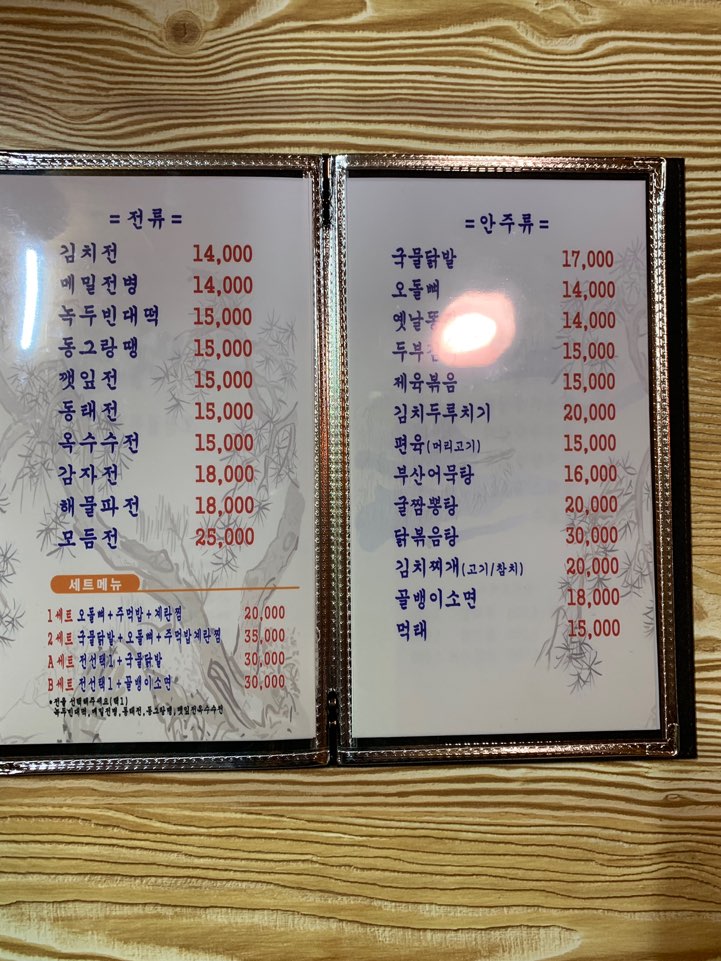 =전류=
김치전 14,000
메밀전병 14,000
녹두빈대떡 15,000
동그랑땡 15,000
깻잎전 15,000
동태전 15,000
옥수수전 15,000
감자전 18,000
해물파전 18,000
모듬전 25,000
세트메뉴
1세트 오돌뼈+주먹밥+계란찜 20,000
2세트 국물닭발+오돌뼈+주먹밥계란찜 35,000
A세트 전선택1+국물닭발 30,000
B세트 전선택1+골뱅이소면 30,000
*전을 선택해주세요(택1)
녹두빈대떡,메밀전병,동태전,동그랑땡,깻잎전옥수수전
=안주류=
국물닭발 17,000
오돌뼈 14,000
옛날 14,000
두부 15,000
제육볶음 15,000
김치두루치기 20,000
편육(머리고기) 15,000
부산어묵탕 16,000
굴짬뽕탕 20,000
닭볶음탕 30,000
김치찌개(고기/참치) 20,000
골뱅이소면 18,000
먹태 15,000